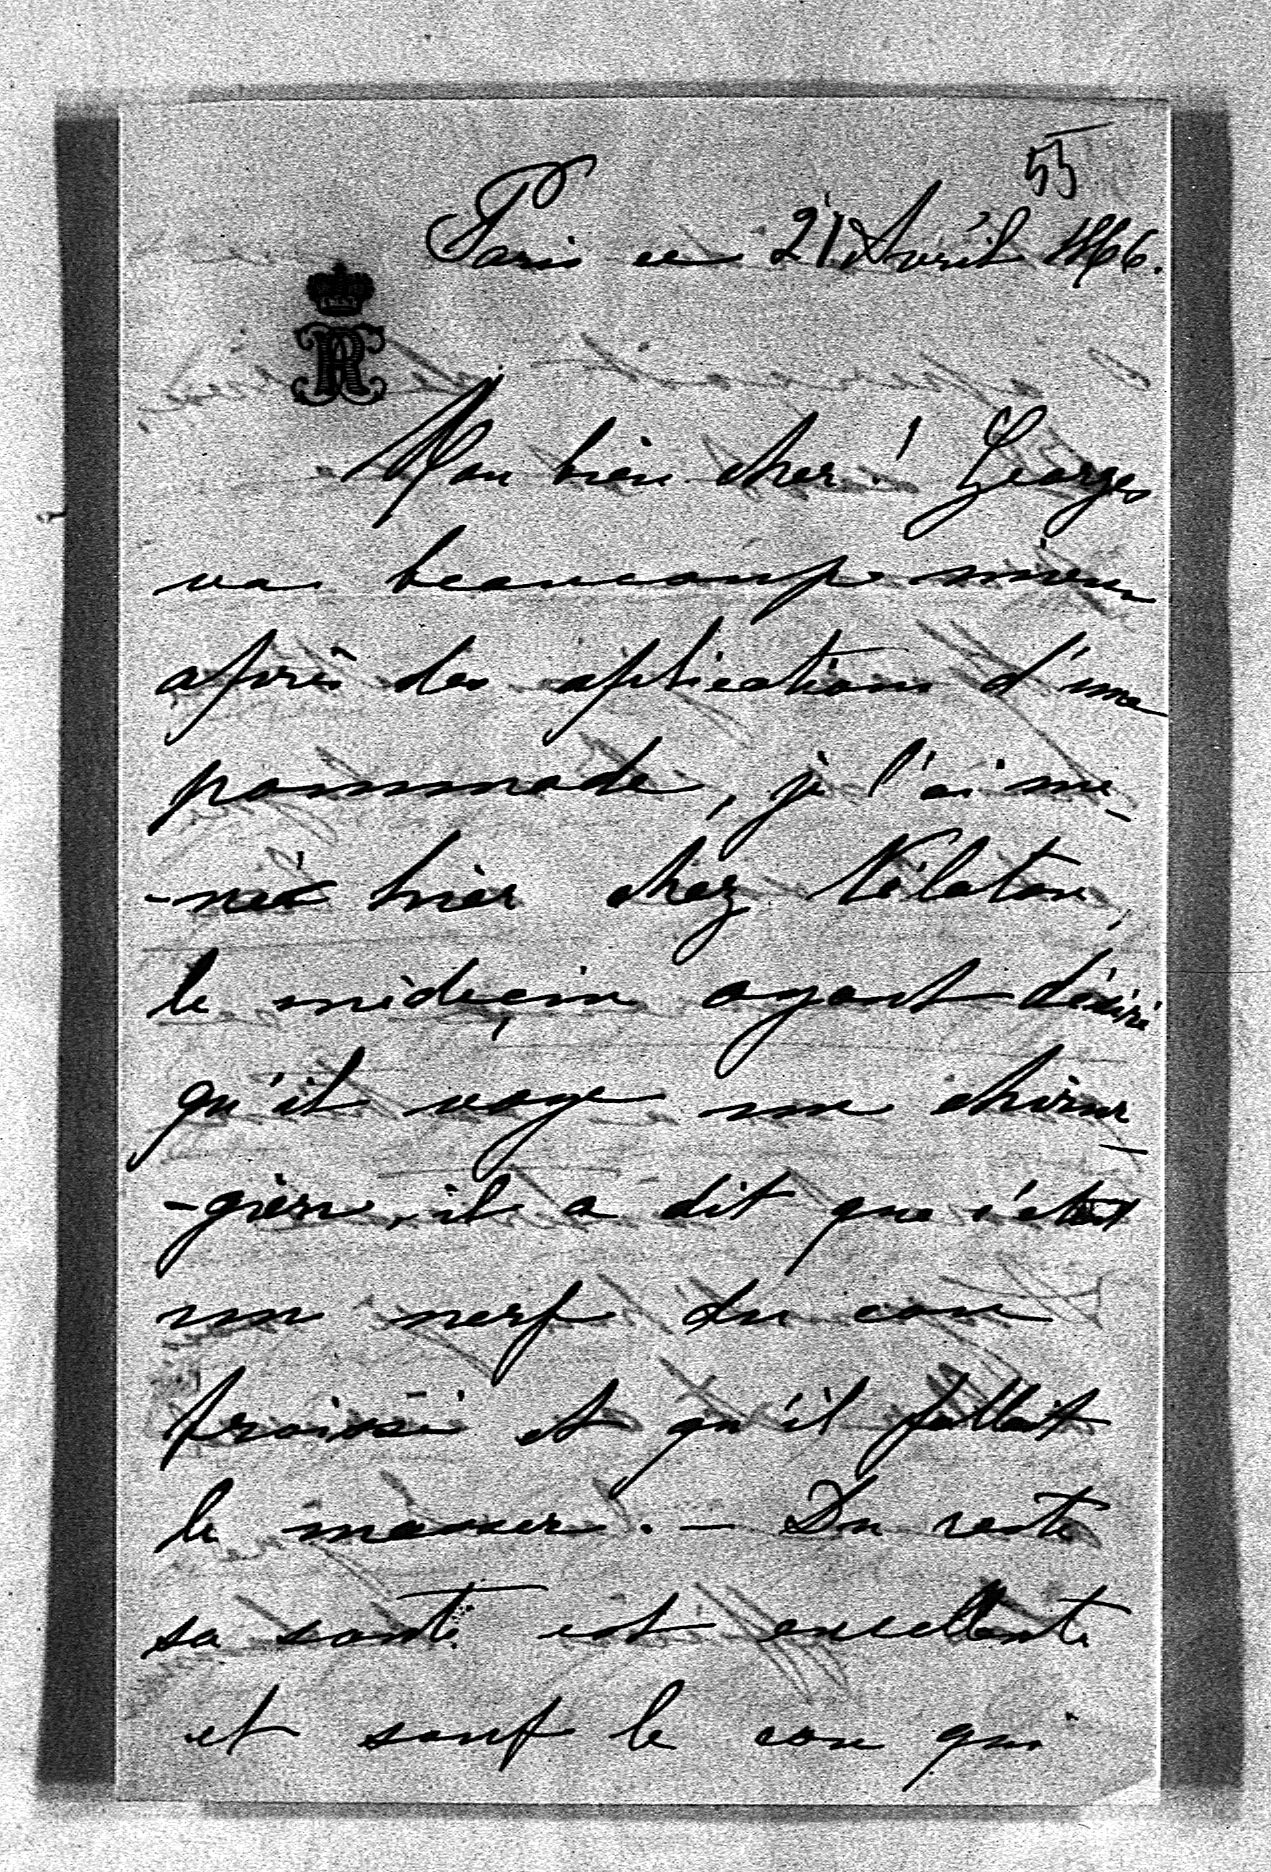 55
Paris ce 21 Avril 1866.
R
Mon bien cher! Georges
va beaucoup mieux
après des aplications d'une
pommade, je l'ai me-
-né hier chez Nélaton,
le médeçin ayant désiré
qu'il voye un chirur-
-gien, il a dit que c'était
un nerf du cou
froissé et qu'il fallait
le masser. — Du reste
sa santé est excellente
et sauf le cou qui